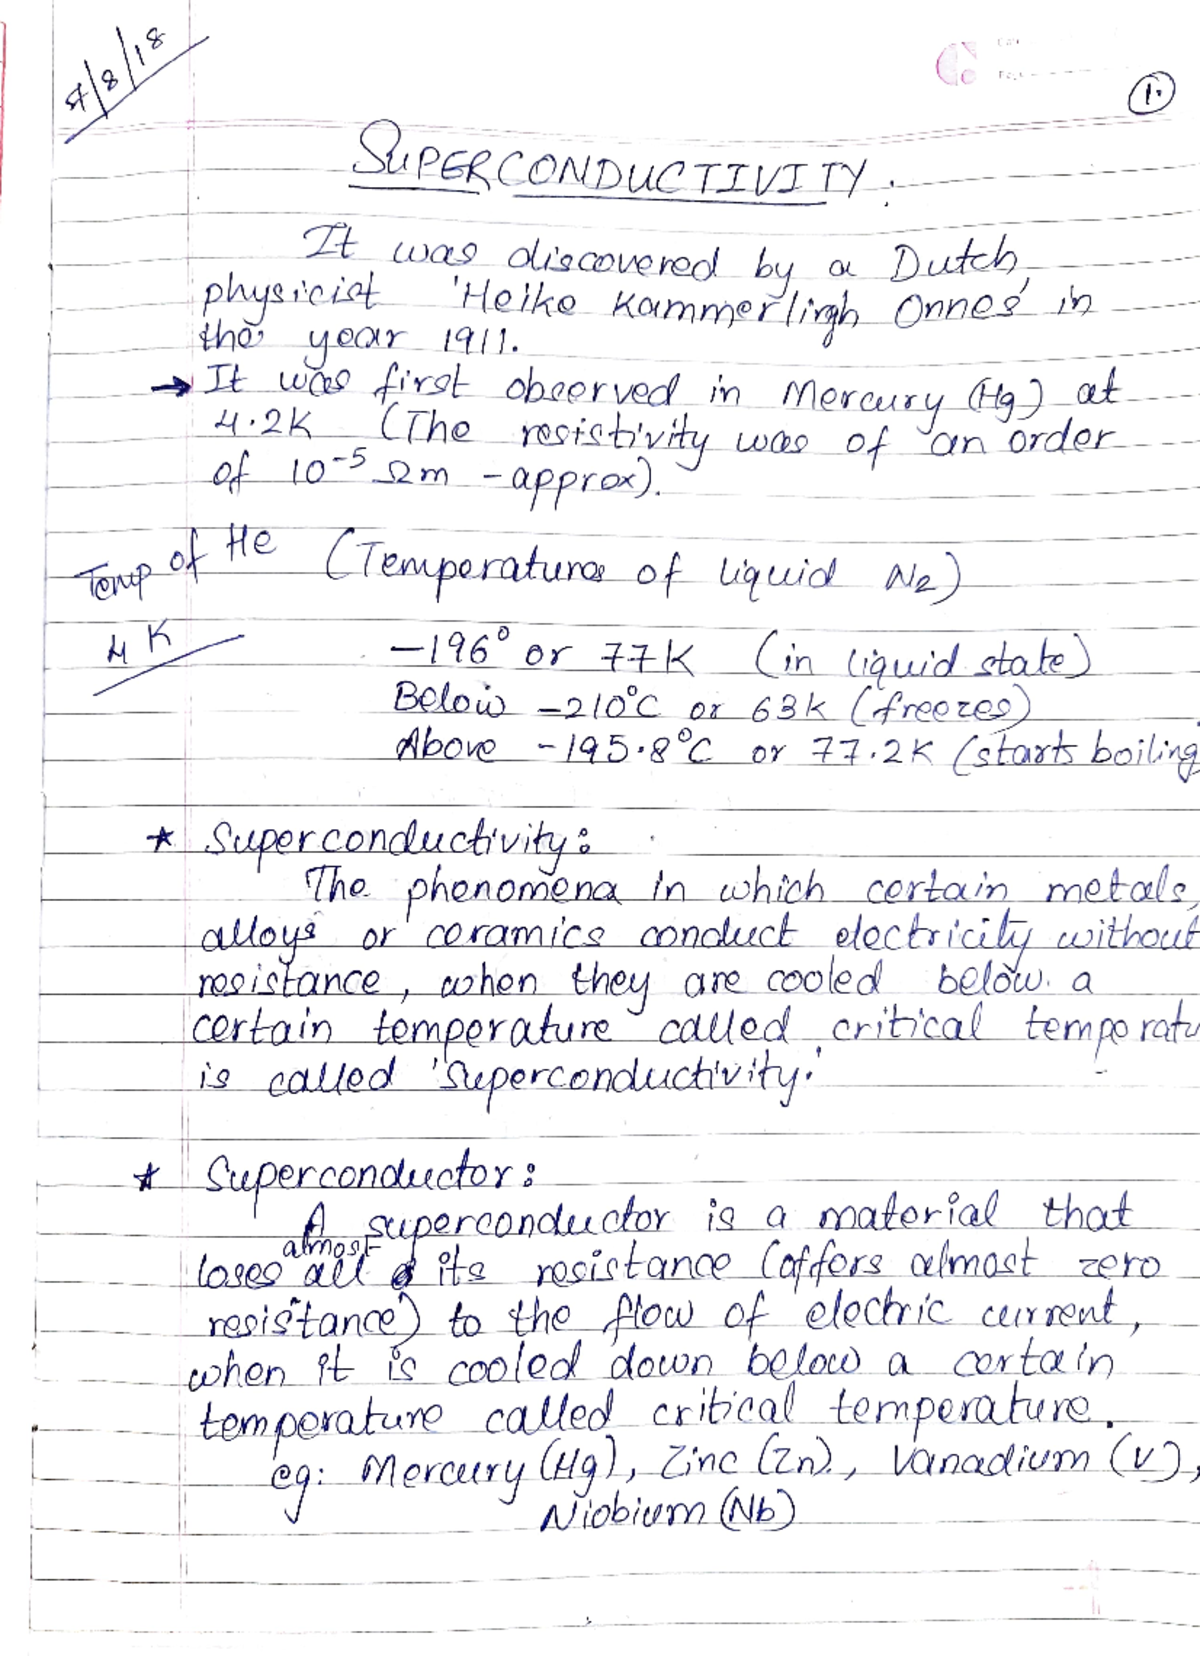 4/8/18
1.
SUPERCONDUCTIVITY.
It was discovered by a Dutch
physicist 'Heike Kammerlingh Onnes' in
the year 1911.
→ It was first observed in Mercury (Hg) at
4.2K (The resistivity was of an order
of 10⁻⁵ Ωm - approx).
Temp of He (Temperatures of liquid N₂)
4 K
-196° or 77K (in liquid state)
Below -210°C or 63K (freezes)
Above -195.8°C or 77.2K (starts boiling
* Superconductivity:
The phenomena in which certain metals,
alloys or ceramics conduct electricity without
resistance, when they are cooled below a
certain temperature called critical temperatu
is called 'Superconductivity.'
* Superconductor:
A superconductor is a material that
loses almost all its resistance (offers almost zero
resistance) to the flow of electric current,
when it is cooled down below a certain
temperature called critical temperature.
eg: Mercury (Hg), Zinc (Zn), Vanadium (V),
Niobium (Nb)